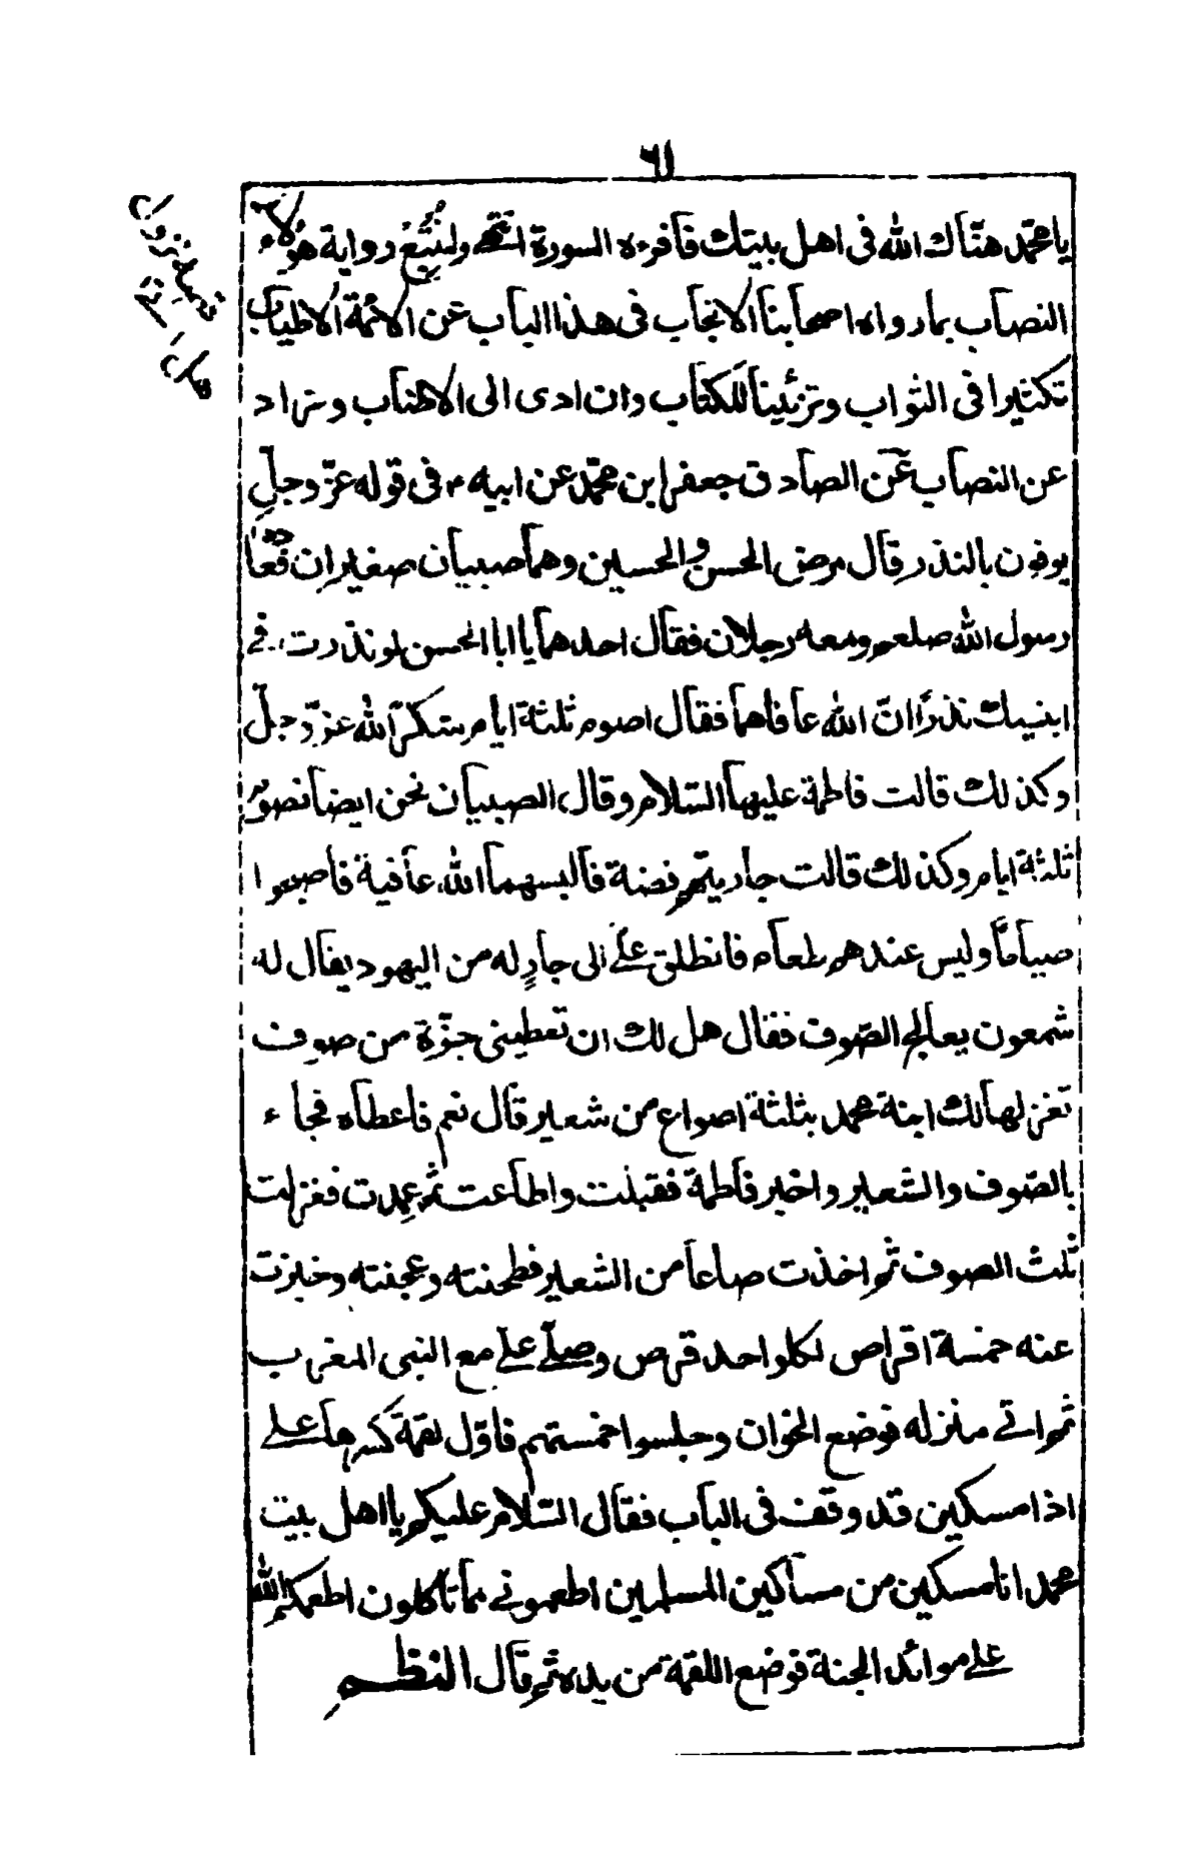 ٦١
يا محمّد هنّاك الله فى اهل بيتك فاقرءه السورة انتهى ولنتبع رواية هؤلاء
النصاب بما رواه اصحابنا الانجاب فى هذا الباب عن الائمة الاطياب
تكثيرا فى الثواب وتزئينا للكتاب وان ادى الى الاطناب وتزاد
عن النصاب عن الصادق جعفر ابن محمّد عن ابيه ٢ فى قوله عزّ وجلّ
يوفون بالنذر قال مرض الحسن والحسين وهما صبيان صغيران
رسول الله صلعم ومعه رجلان فقال احدهما يا ابا الحسن لو نذرت فى
ابنيك نذرًا انّ الله عافاهما فقال اصوم ثلثة ايام شكرًا لله عزّ وجلّ
وكذلك قالت فاطمة عليها السّلام وقال الصبيان نحن ايضا نصوم
ثلثة ايام وكذلك قالت جاريتهم فضة فالبسهما الله عافية فاصبحوا
صياما وليس عندهم طعام فانطلق على الى جارٍ له من اليهود يقال له
شمعون يعالج الصّوف فقال هل لك ان تعطينى جزّة من صوف
تغزلها لك ابنة محمد بثلثة اصواع من شعير قال نعم فاعطاه فجاء
بالصّوف والشعير واخبر فاطمة فقبلت واطاعت ثم عمدت فغزلت
ثلث الصوف ثم اخذت صاعا من الشعير فطحنته وعجنته وخبزت
عنه خمسة اقراص لكلواحد قرص وصلّى على مع النبى المغرب
ثم اتى منزله فوضع الخوان وجلسوا خمستهم فاوّل لقمة كسرها على
اذا مسكين قد وقف فى الباب فقال السّلام عليكم يا اهل بيت
محمد انا مسكين من مساكين المسلمين اطعمونى مما تاكلون اطعمكم الله
على موائد الجنة فوضع اللقمة من يده ثم قال النظم